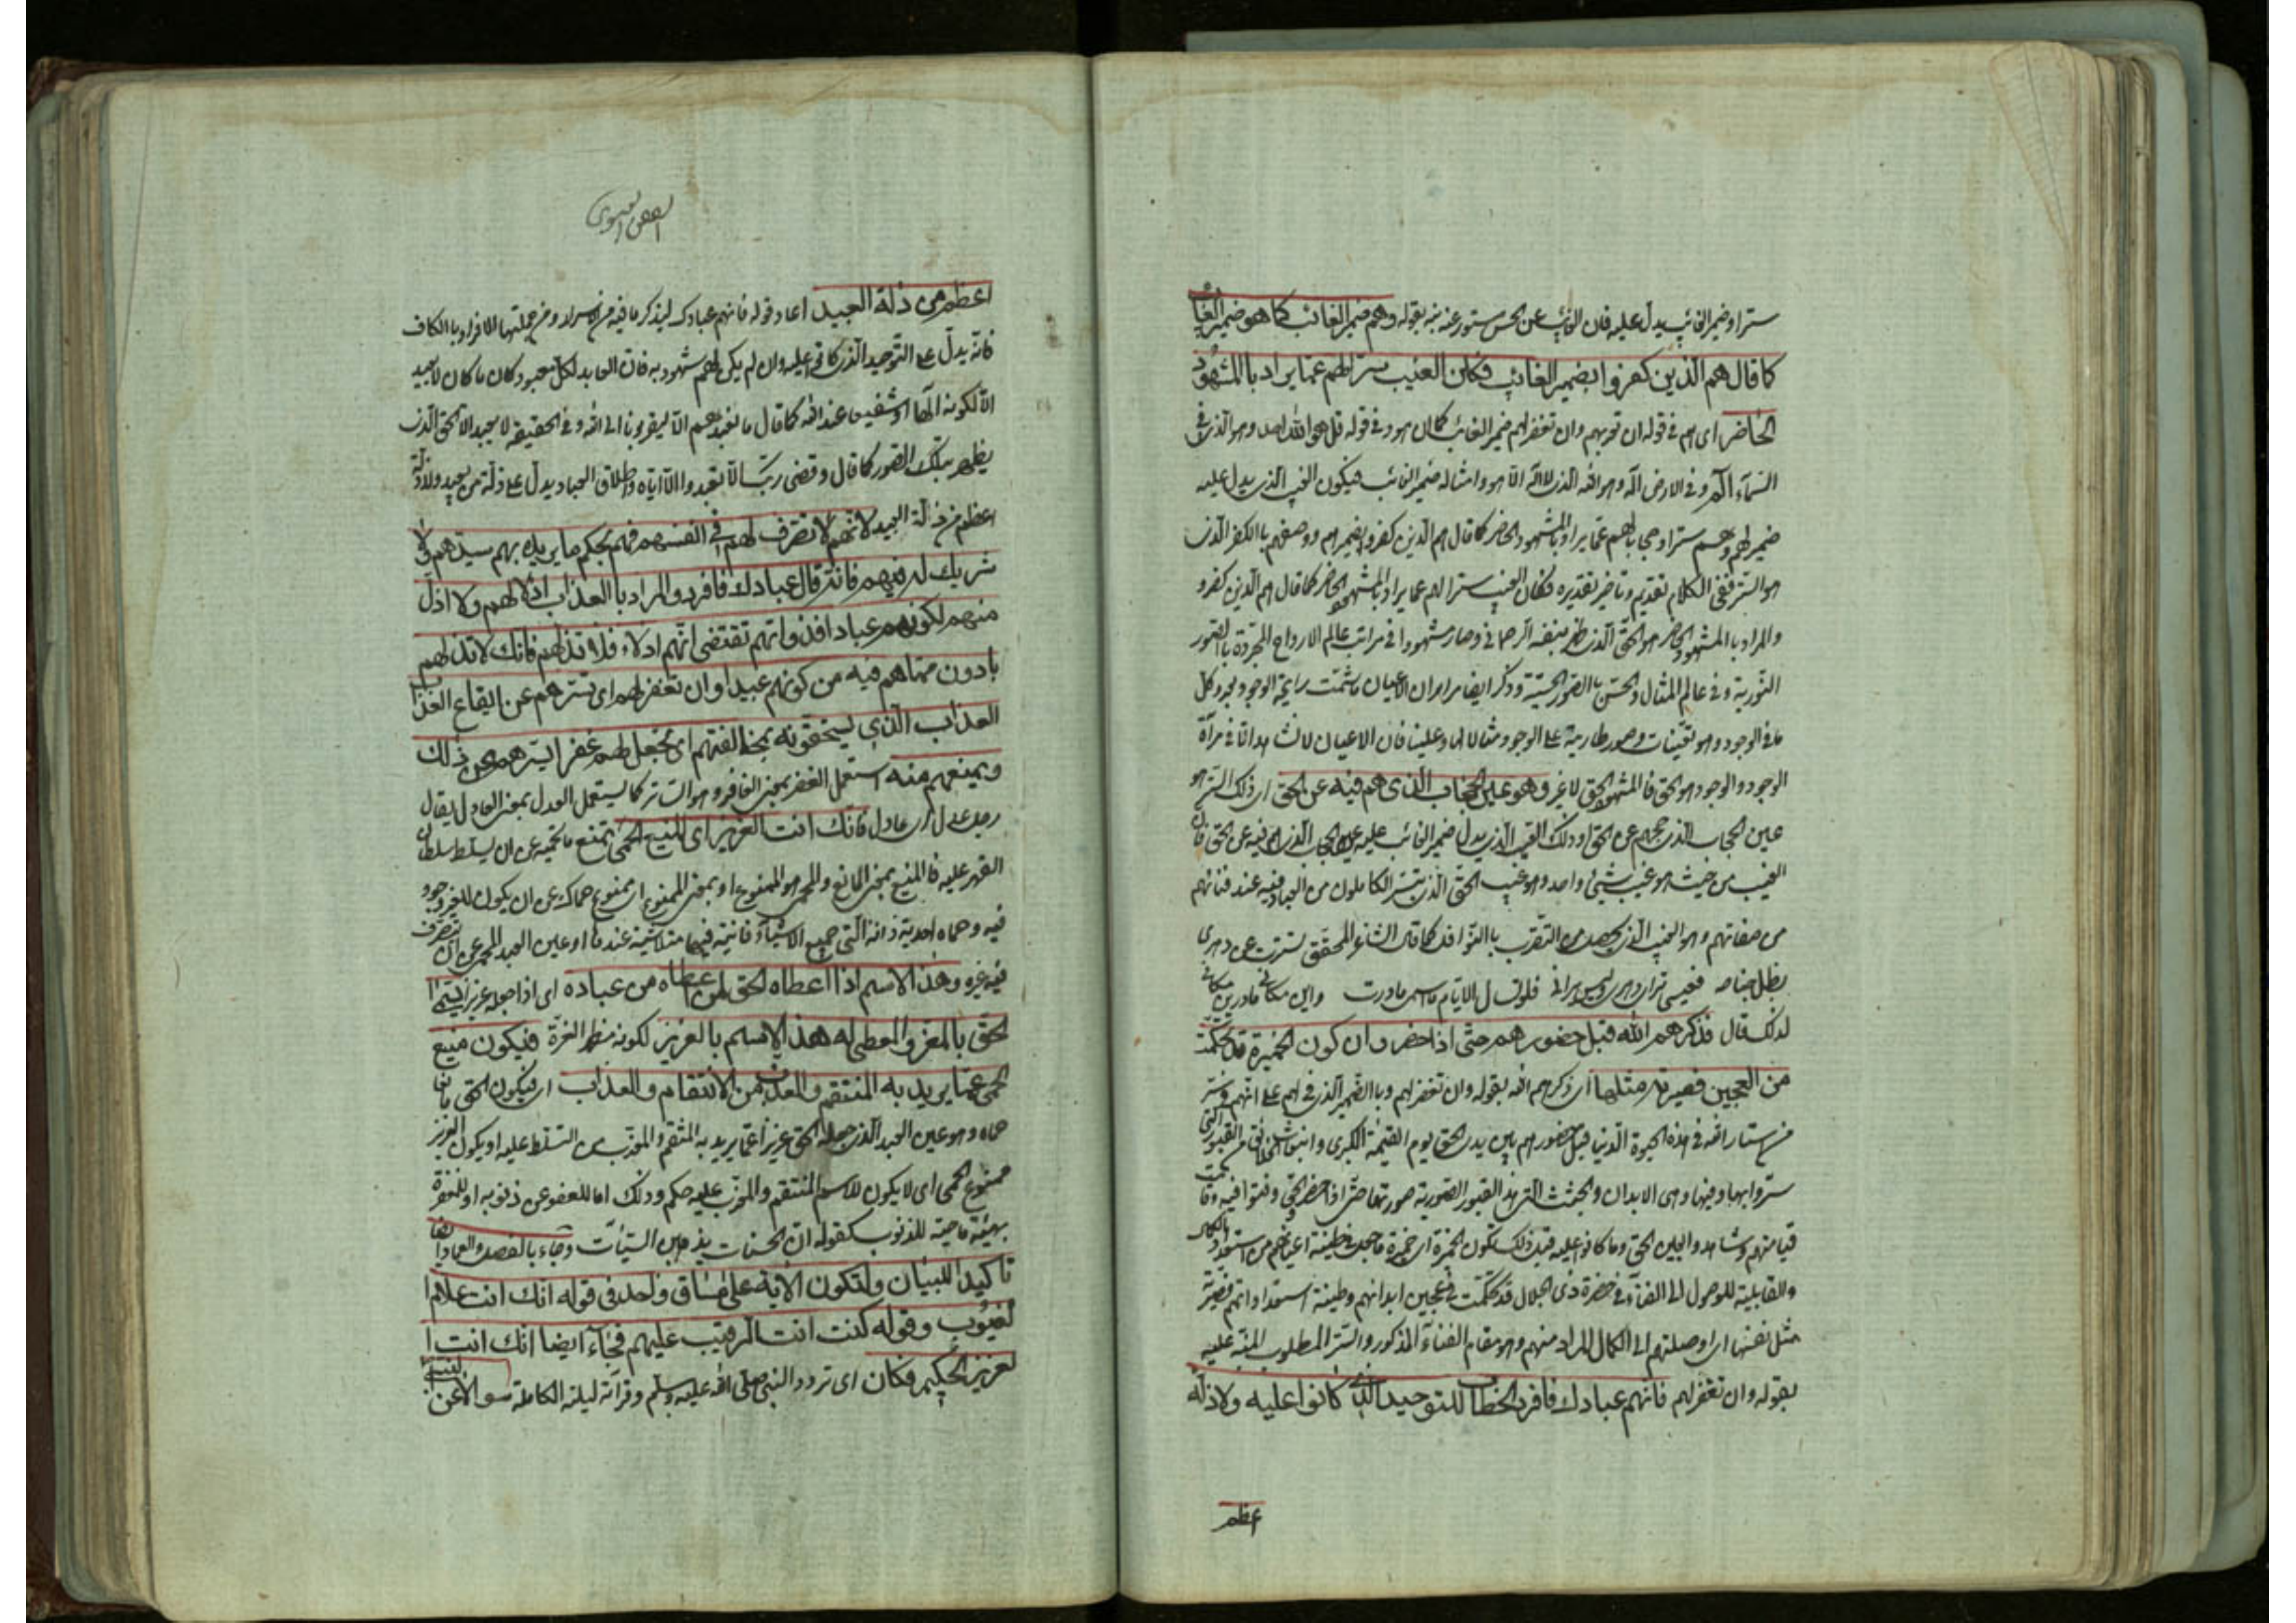 ستراً وضمير الغائب يدل عليه فان الغائب عن الحس مستور عنه نبه بقوله وهم ضمير الغائب كما هو ضمير الغائب
كما قال هم الذين كفروا بضمير الغائب فكان الغيب ستراً لهم عما يراد بالمشهود
الحاضر اى هم فى قوله ان تعذبهم وان تغفر لهم ضمير الغائب كما ان هو فى قوله قل هو الله احد وهو الذى فى
السماء اله وفى الارض اله وهو الله الذى لا اله الا هو وامثاله ضمير الغائب فيكون الغيب الذى يدل عليه
ضمير لهم وهم ستراً وحجاباً لهم عما يراد بالمشهود الحاضر كما قال هم الذين كفروا بضميرهم ووصفهم بالكفر الذى
هو الستر ففى الكلام تقديم وتأخير تقديره فكان الغيب ستراً لهم عما يراد بالمشهود الحاضر كما قال هم الذين كفروا
والمراد بالمشهود الحاضر هو الحق الذى ظهر بنفسه الرحمانى وصار مشهوداً فى مراتب عالم الارواح المجردة بالصور
النورية وفى عالم المثال والحس بالصور الحسية وذكر ايضا مراراً ان الاعيان ما شمت رايحة الوجود بعد وكل
ما فى الوجود وهو تعينات وصور طارية على الوجود ومثالا لها وعلينا فان الاعيان لا تشاهد الا فى مرآة
الوجود والوجود هو الحق فالمشهود الحق لا غير وهو عين الحجاب الذى هم فيه عن الحق اى ذلك الستر هو
عين الحجاب الذى حجبهم عن الحق او ذلك الغيب الذى يدل ضمير الغائب عليه عين الحجاب الذى هم فيه عن الحق فان
الغيب من حيث هو غيب شئ واحد وهو غيب الحق الذى يتستر الكاملون من العباد فيه عند فنائهم
من صفاتهم وهو الغيب الذى يحصل من التقرب بالنوافل كما قال الشاعر المحقق تسترت عن دهرى
بظل جناحه فعينى ترى دهرى وليس يرانى فلو تسأل الايام ما اسمى ما درت واين مكانى ما درين مكانى
لذلك قال فذكرهم الله قبل حضورهم حتى اذا حضروا ان تكون الخميرة قد تحكمت
من العجين فصيرته مثلها اى ذكرهم الله بقوله وان تغفر لهم وبالضمير الذى فى لهم على انهم فى ستر
من استار الله فى هذه الحيوة الدنيا قبل حضورهم بين يدى الحق يوم القيمة الكبرى وانبعاث الخلائق من القبور التى
ستروا بها وفيها وهى الابدان والجثث التى هذه القبور الصورية صورتها حتى اذا حضر الحق وفنوا فيه وقامت
قيامتهم وشاهدوا عين الحق وما كانوا عليه قبل ذلك تكون الخميرة اى خميرة ما جعل فى طينة اعيانهم من استعداد الكمال
والقابلية للوصول الى الفناء فى حضرة ذى الجلال قد تحكمت فى عجين ابدانهم وطينة استعداداتهم فصيرته
مثل نفسها اى اوصلتهم الى الكمال المراد منهم وهو مقام الفناء المذكور والستر المطلوب المنبه عليه
بقوله وان تغفر لهم فانهم عبادك فافرد الخطاب للتوحيد الذى كانوا عليه ولا ذلة
اعظم
الفص العيسوى
اعظم من ذلة العبيد اعاد قوله فانهم عبادك ليذكر ما فيه من الاسرار ومن جملتها الافراد بالكاف
فانه يدل على التوحيد الذى كانوا عليه وان لم يكن لهم شهود به فان العابد لكل معبود كان ما كان لا يعبد
الا لكونه الها او شفيعا عند الله كما قال ما نعبدهم الا ليقربونا الى الله وفى الحقيقة لا يعبد الا الحق الذى
يظهر بتلك الصور كما قال وقضى ربك الا تعبدوا الا اياه واطلاق العباد يدل على ذلة من يعبد ولا ذلة
اعظم من ذلة العبيد لانهم لا تصرف لهم فى انفسهم فهم بحكم ما يريده بهم سيدهم ولا
شريك له فيهم فانه قال عبادك فافرد والمراد بالعذاب اذلالهم ولا اذل
منهم لكونهم عباداً فذواتهم تقتضى انهم اذلاء فلا تذلهم فانك لا تذلهم
بادون مما هم فيه من كونهم عبيداً وان تغفر لهم اى تسترهم عن ايقاع العذاب
العذاب الذى يستحقونه بمخالفتهم اى تجعل لهم غفراً يسترهم عن ذلك
ويمنعهم منه استعمل الغفر بمعنى الغافر وهو الساتر كما يستعمل العدل بمعنى العادل يقال
رجل عدل اى عادل فانك انت العزيز اى المنيع الحمى تمنع ما تحميه عن ان يسلط سلطان
القهر عليه فالمنيع بمعنى المانع والحمى هو الممنوع او بمعنى الممنوع اى ممنوع حماك عن ان يكون للغير وجود
فيه وحماه احدية ذاته التى جميع الاشياء فانية فيها متلاشية عندها او عين العبد المحمى عن ان يتصرف
فيه غيره وهذا الاسم اذا اعطاه الحق لمن اعطاه من عباده اى اذا جعله عزيزاً يسمى
الحق بالمعز والمعطى له هذا الاسم بالعزيز لكونه مظهر العزة فيكون منيع
الحمى عما يريد به المنتقم والمعذب من الانتقام والعذاب اى فيكون الحق مانعا
حماه وهو عين العبد الذى جعله الحق عزيزاً عما يريد به المنتقم والمعذب من التسلط عليه او يكون العزيز
ممنوع الحمى اى لا يكون للاسم المنتقم والمعذب عليه حكم وذلك اما للعفو عن ذنوبه او للمغفرة
بهيئة ماحية للذنوب كقوله ان الحسنات يذهبن السيئات وجاء بالفصل والعماد ايضا
تأكيداً للبيان ولتكون الآية على مساق واحد فى قوله انك انت علام ا
لغيوب وقوله كنت انت الرقيب عليهم فجاء ايضا انك انت ا
لعزيز الحكيم فكان اى تردد النبى صلى الله عليه وسلم وقرآنه ليلته الكاملة سؤالا عن النبى